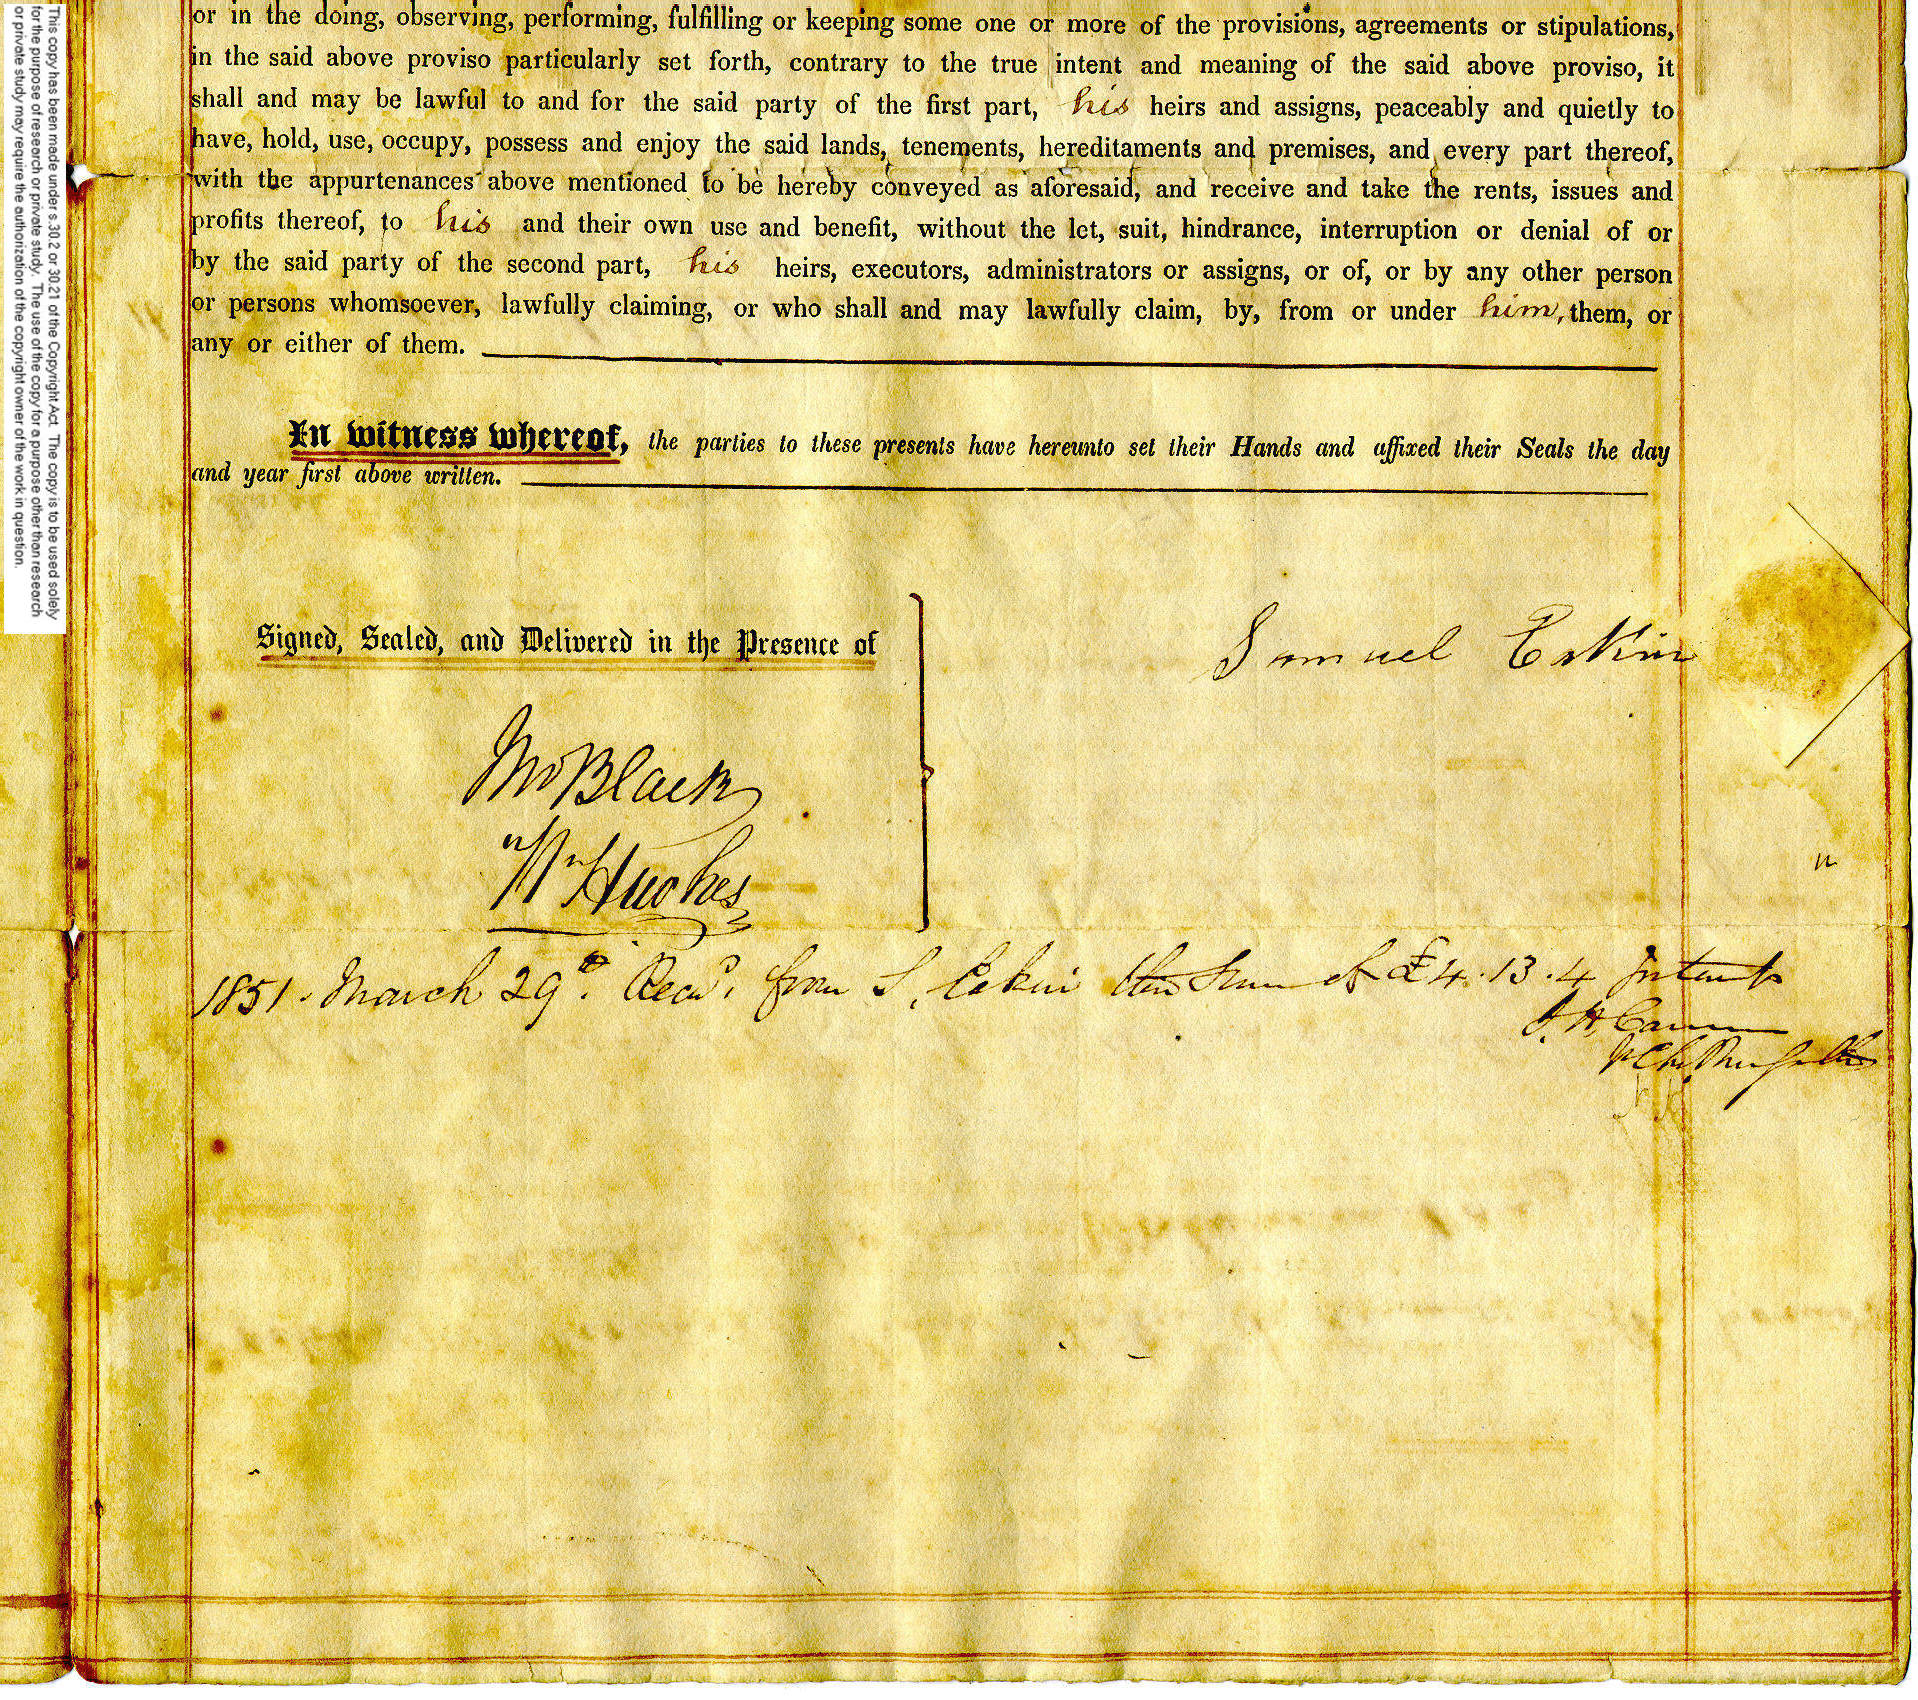 This copy has been made under s.30.2 or 30.21 of the Copyright Act. The copy is to be used solely
for the purpose of research or private study. The use of the copy for a purpose other than research
or private study may require the authorization of the copyright owner of the work in question.
or in the doing, observing, performing, fulfilling or keeping some one or more of the provisions, agreements or stipulations,
in the said above proviso particularly set forth, contrary to the true intent and meaning of the said above proviso, it
shall and may be lawful to and for the said party of the first part, his heirs and assigns, peaceably and quietly to
have, hold, use, occupy, possess and enjoy the said lands, tenements, hereditaments and premises, and every part thereof,
with the appurtenances above mentioned to be hereby conveyed as aforesaid, and receive and take the rents, issues and
profits thereof, to his and their own use and benefit, without the let, suit, hindrance, interruption or denial of or
by the said party of the second part, his heirs, executors, administrators or assigns, or of, or by any other person
or persons whomsoever, lawfully claiming, or who shall and may lawfully claim, by, from or under him, them, or
any or either of them.
In witness whereof, the parties to these presents have hereunto set their Hands and affixed their Seals the day
and year first above written.
Signed, Sealed, and Delivered in the Presence of
Samuel Eakin
Black
Hughes
1851. March 29th. Recd. from S. Eakin the Sum of £4.13.4